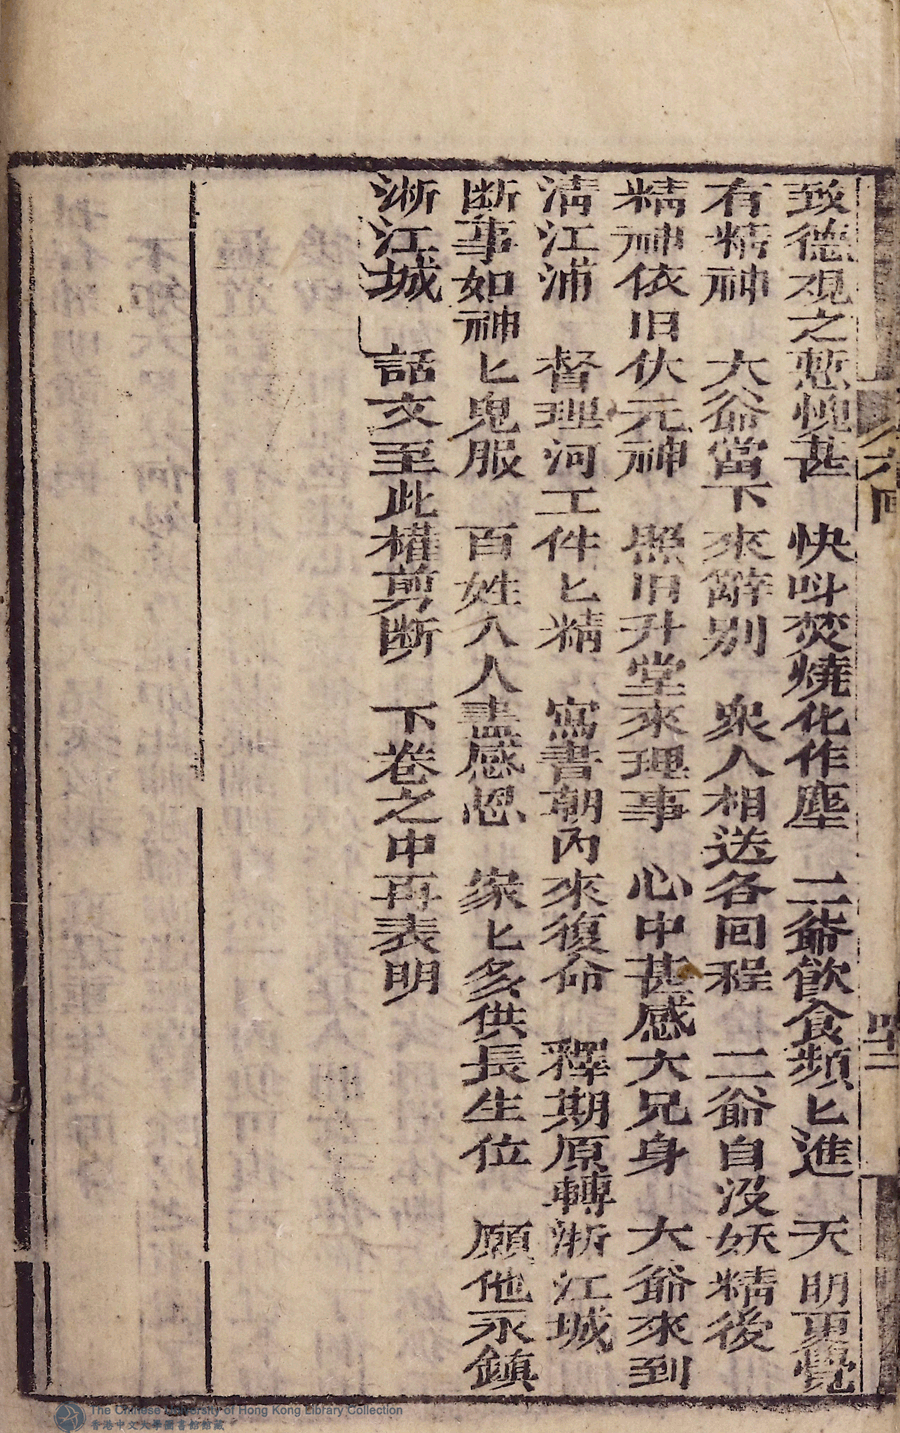 致德視之慙愧甚　快呌焚燒化作塵　二爺飲食頻匕進　天明更覺
有精神　大爺當下來辭別　衆人相送各回程　二爺自沒妖精後
精神依旧伏元神　照旧升堂來理事　心中甚感大兄身　大爺來到
淸江浦　督理河工件匕精　寫書朝內來復命　釋期原轉淅江城
断事如神匕鬼服　百姓人人盡感恩　家匕多供長生位　願他永鎮
淅江城　話文至此權剪断　下卷之中再表明
The Chinese University of Hong Kong Library Collection
香港中文大學圖書館館藏